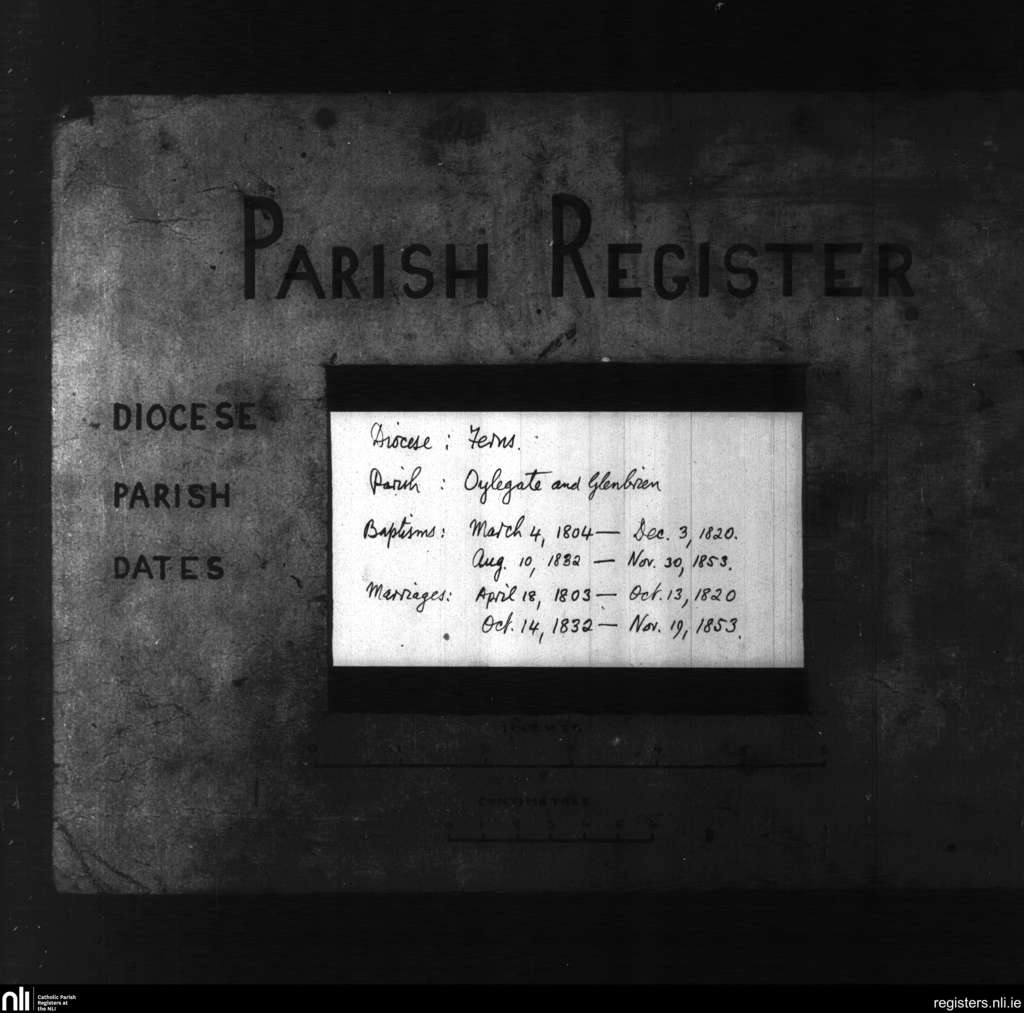 PARISH REGISTER
DIOCESE
PARISH
DATES
Diocese : Ferns.
Parish : Oylegate and Glenbrien
Baptisms: March 4, 1804 — Dec. 3, 1820.
Aug. 10, 1832 — Nov. 30, 1853.
Marriages: April 18, 1803 — Oct. 13, 1820
Oct. 14, 1832 — Nov. 19, 1853.
CENTIMETRES
nli
Catholic Parish
Registers at
the NLI
registers.nli.ie